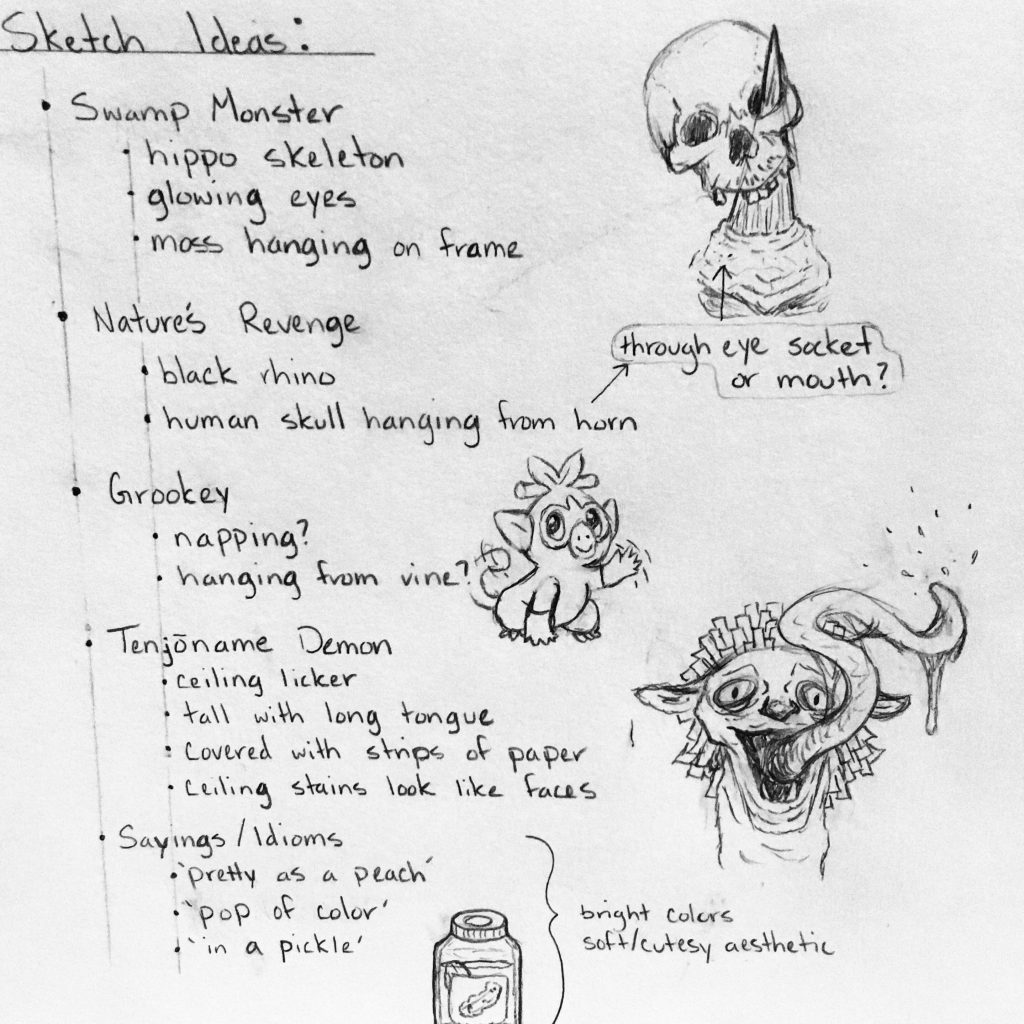 Sketch Ideas:
• Swamp Monster
• hippo skeleton
• glowing eyes
• moss hanging on frame
• Nature's Revenge
• black rhino
• human skull hanging from horn
through eye socket
or mouth?
• Grookey
• napping?
• hanging from vine?
• Tenjōname Demon
• ceiling licker
• tall with long tongue
• covered with strips of paper
• ceiling stains look like faces
• Sayings/Idioms
• 'pretty as a peach'
• 'pop of color'
• 'in a pickle'
bright colors
soft/cutesy aesthetic